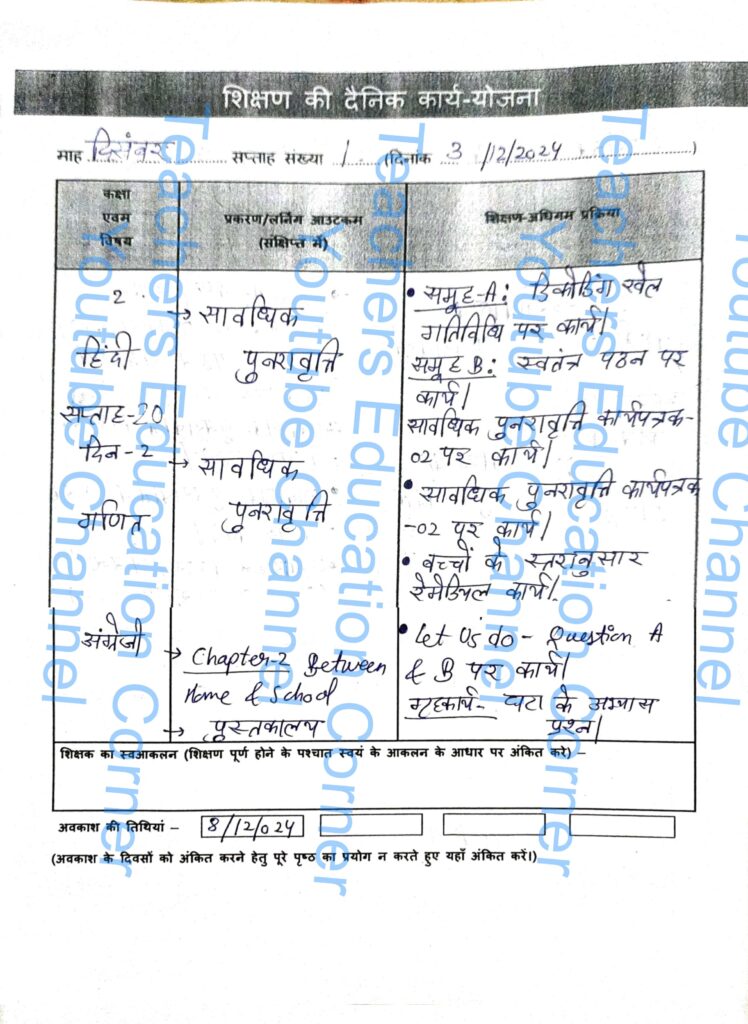 शिक्षण की दैनिक कार्य-योजना
माह दिसंबर सप्ताह संख्या 1 (दिनाक 3 /12/2024 )
कक्षा
एवम
विषय
प्रकरण/लर्निंग आउटकम
(संक्षिप्त में)
शिक्षण-अधिगम प्रक्रिया
2
हिंदी
सप्ताह-20
दिन-2
→ सावधिक
पुनरावृत्ति
• समूह-A: डिकोडिंग खेल
गतिविधि पर कार्य।
समूह B: स्वतंत्र पठन पर
कार्य।
सावधिक पुनरावृत्ति कार्यपत्रक-
02 पर कार्य।
गणित
→ सावधिक
पुनरावृत्ति
• सावधिक पुनरावृत्ति कार्यपत्रक
-02 पर कार्य।
• बच्चों के स्तरानुसार
रेमेडियल कार्य।
अंग्रेजी
→ Chapter-2 Between
Home & School
→ पुस्तकालय
• Let Us do - Question A
& B पर कार्य।
गृहकार्य- के अभ्यास
प्रश्न।
शिक्षक का स्वआकलन (शिक्षण पूर्ण होने के पश्चात स्वयं के आकलन के आधार पर अंकित करे) –
अवकाश की तिथियां – 8/12/2024
(अवकाश के दिवसों को अंकित करने हेतु पूरे पृष्ठ का प्रयोग न करते हुए यहाँ अंकित करें।)
Teachers Education Corner
Youtube Channel
Teachers Education Corner
Youtube Channel
Teachers Education Corner
Youtube Channel